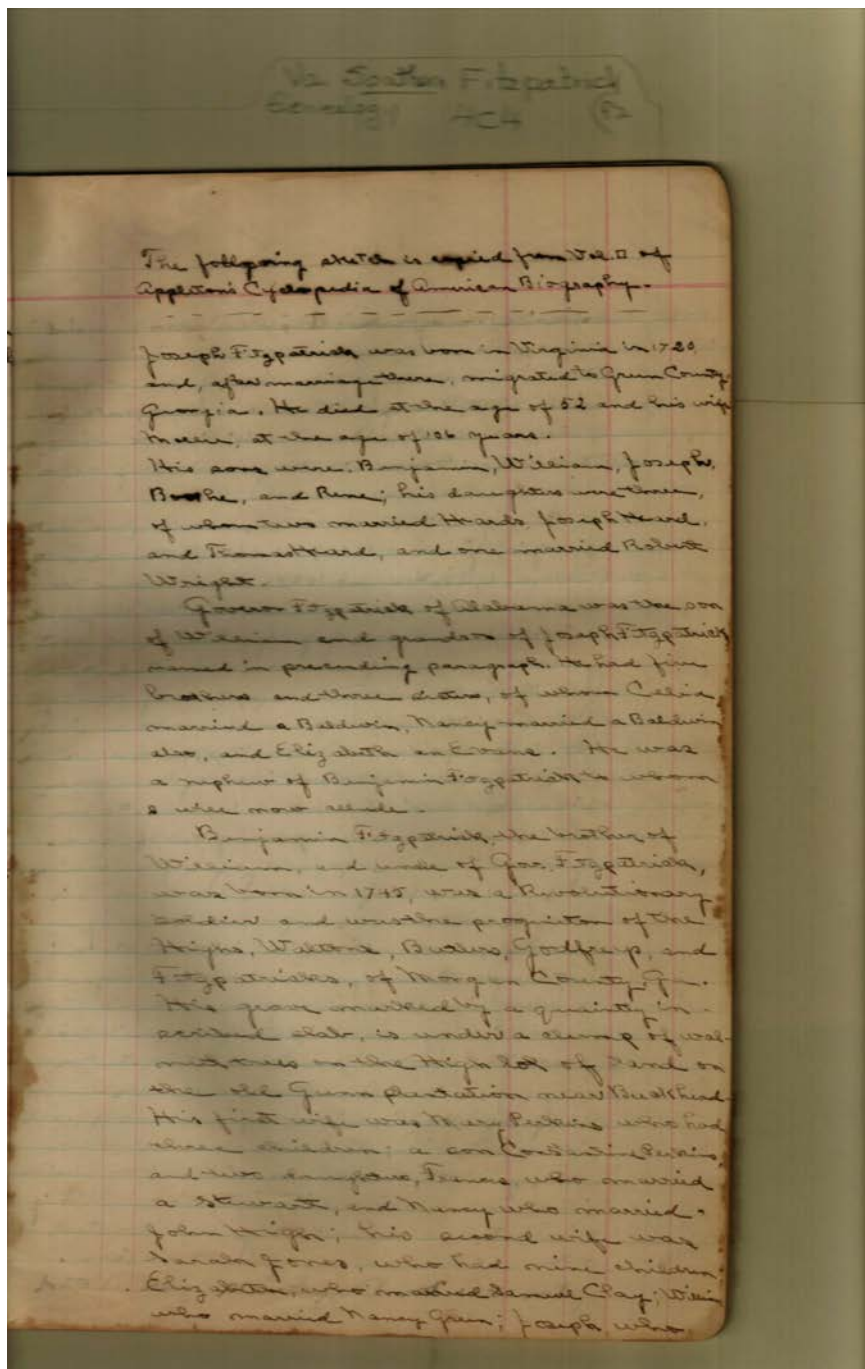 Va Southern Fitzpatrick
Genealogy 4C4 (P2
The following sketch is copied from Vol. II of
Appleton's Cyclopedia of American Biography.
Joseph Fitzpatrick was born in Virginia in 1720
and, after marriage there, migrated to Green County,
Georgia. He died at the age of 52 and his wife
at the age of 106 years.
His sons were: Benjamin, William, Joseph,
Boothe, and Rene; his daughters were three,
of whom two married Heards, Joseph Heard,
and Thomas Heard, and one married Robert
Wright.
Governor Fitzpatrick of Alabama was the son
of William and grandson of Joseph Fitzpatrick
named in preceeding paragraph. He had five
brothers and three sisters, of whom Celia
married a Baldwin, Nancy married a Baldwin
also, and Elizabeth an Evans. He was
a nephew of Benjamin Fitzpatrick to whom
I will now allude.
Benjamin Fitzpatrick, the brother of
William, and uncle of Gov. Fitzpatrick,
was born in 1745, was a Revolutionary
soldier and was the progenitor of the
Highs, Waltons, Butlers, Godfreys, and
Fitzpatricks, of Morgan County, Ga.
His grave marked by a quaintly in-
scribed slab, is under a clump of wal-
nut trees on the High lot of land on
the old Gunn plantation near Buckhead.
His first wife was Mary Perkins who had
three children: a son Constantine Perkins,
and two daughters, Frances, who married
a Stewart, and Nancy who married
John High; his second wife was
Sarah Jones, who had nine children:
Elizabeth, who married Samuel Clay; William
who married Nancy Green; Joseph who